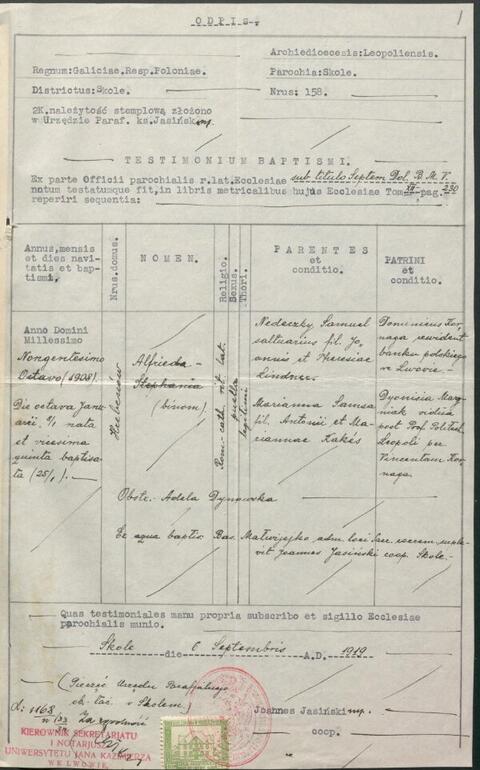 O D P I S .
1
Archiedioecesis:Leopoliensis.
Regnum:Galiciae,Resp.Poloniae.
Parochia:Skole.
Districtus:Skole.
Nrus: 158.
2K.należytość stemplową złożono
w Urzędzie Paraf. ks.Jasiński mp.
T E S T I M O N I U M   B A P T I S M I .
Ex parte Officii parochialis r.lat.Ecclesiae sub titulo Septem Dol. B. M. V.
notum testatumque fit,in libris metricalibus hujus Ecclesiae Tom. pag. 230
reperiri sequentia:
Annus,mensis
et dies navi-
tatis et bap-
tismi.
Nrus.domus.
N O M E N.
Religio.
Sexus.
Thori.
P A R E N T E S
et
conditio.
PATRINI
et
conditio.
Anno Domini
Millessimo
Nongentesimo
Octavo (1908).
Die octava Janu-
arii, 8/1 nata
et vicesima
quinta baptisa-
ta (25/1).-
Alfrieda-
Stephania
(binom)
Rom-cath. rit. lat.
puella
legitimi
Nedeczky, Samuel
saltuarius fil. Jo-
annis et Theresiae
Lindner.
Marianna Samsa
fil. Antonii et Ma-
riannae Kakes
Dominicus Kor-
naga rewident
banku polskiego
we Lwowie -
Dyonisia Mar-
niak vidua
post Prof. Politech.
Leopoli per
Vincentam Kor-
naga.
Obste. Adela Dynowska
Ex aqua baptis. Bas. Matwijejko adm. loci Sac. cerem. suple-
vit Joannes Jasiński coop. Skole.-
Quas testimoniales manu propria subscribo et sigillo Ecclesiae
parochialis munio.
Skole die 6 Septembris A.D. 1919
(Pieczęć Urzędu Parafialnego
ob. łac. w Skolem.)
Joannes Jasiński mp.
coop.
L: 1168
Za zgodność
KIEROWNIK SEKRETARIATU
I NOTARJUSZ
UNIWERSYTETU JANA KAZIMIERZA
WE LWOWIE